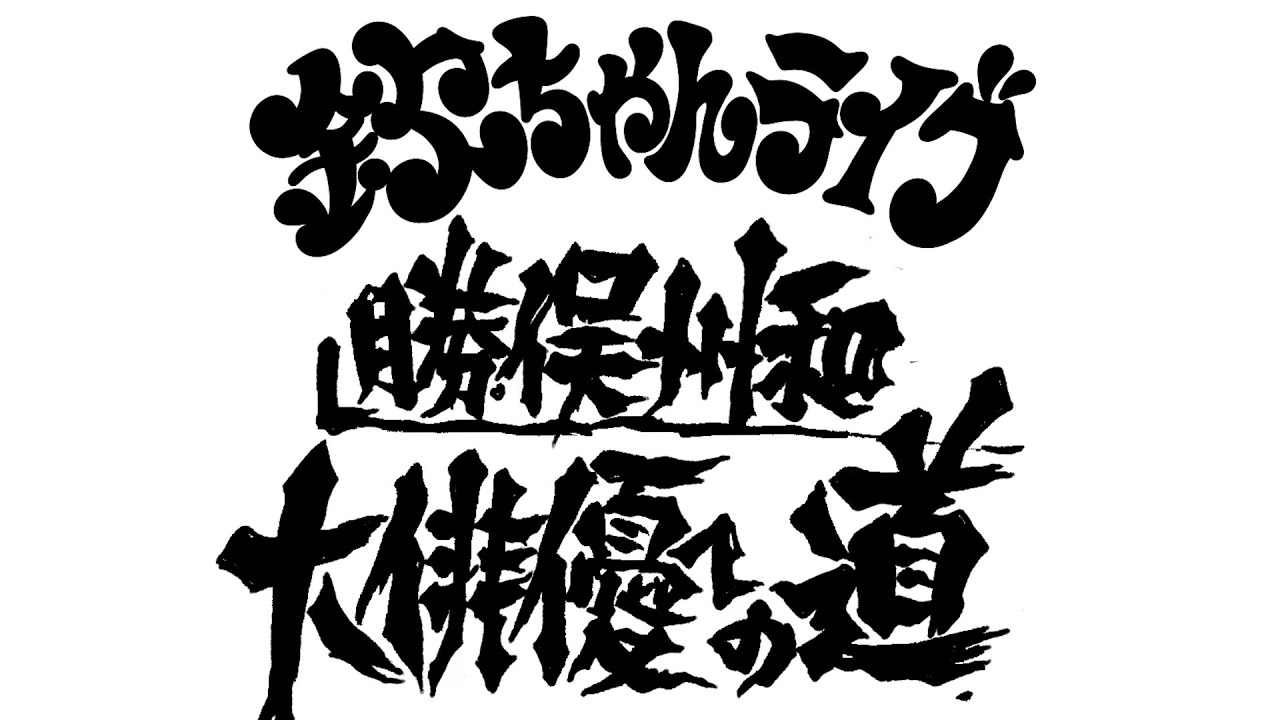 欽ちゃんライブ
勝俣州和
大俳優への道